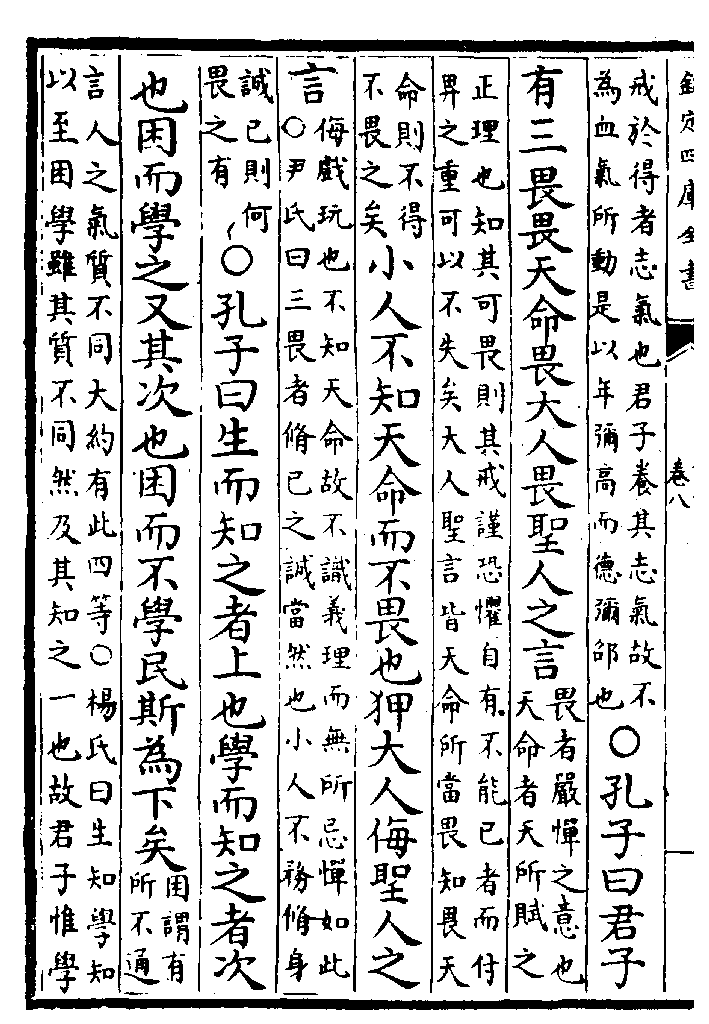 欽定四庫全書 卷八
戒於得者志氣也君子養其志氣故不
為血氣所動是以年彌高而德彌邵也
○孔子曰君子
有三畏畏天命畏大人畏聖人之言
畏者嚴憚之意也
天命者天所賦之
正理也知其可畏則其戒謹恐懼自有不能已者而付
畀之重可以不失矣大人聖言皆天命所當畏知畏天
命則不得
不畏之矣
小人不知天命而不畏也狎大人侮聖人之
言
侮戲玩也不知天命故不識義理而無所忌憚如此
○尹氏曰三畏者脩已之誠當然也小人不務脩身
誠已則何
畏之有
○孔子曰生而知之者上也學而知之者次
也困而學之又其次也困而不學民斯為下矣
困謂有
所不通
言人之氣質不同大約有此四等○楊氏曰生知學知
以至困學雖其質不同然及其知之一也故君子惟學